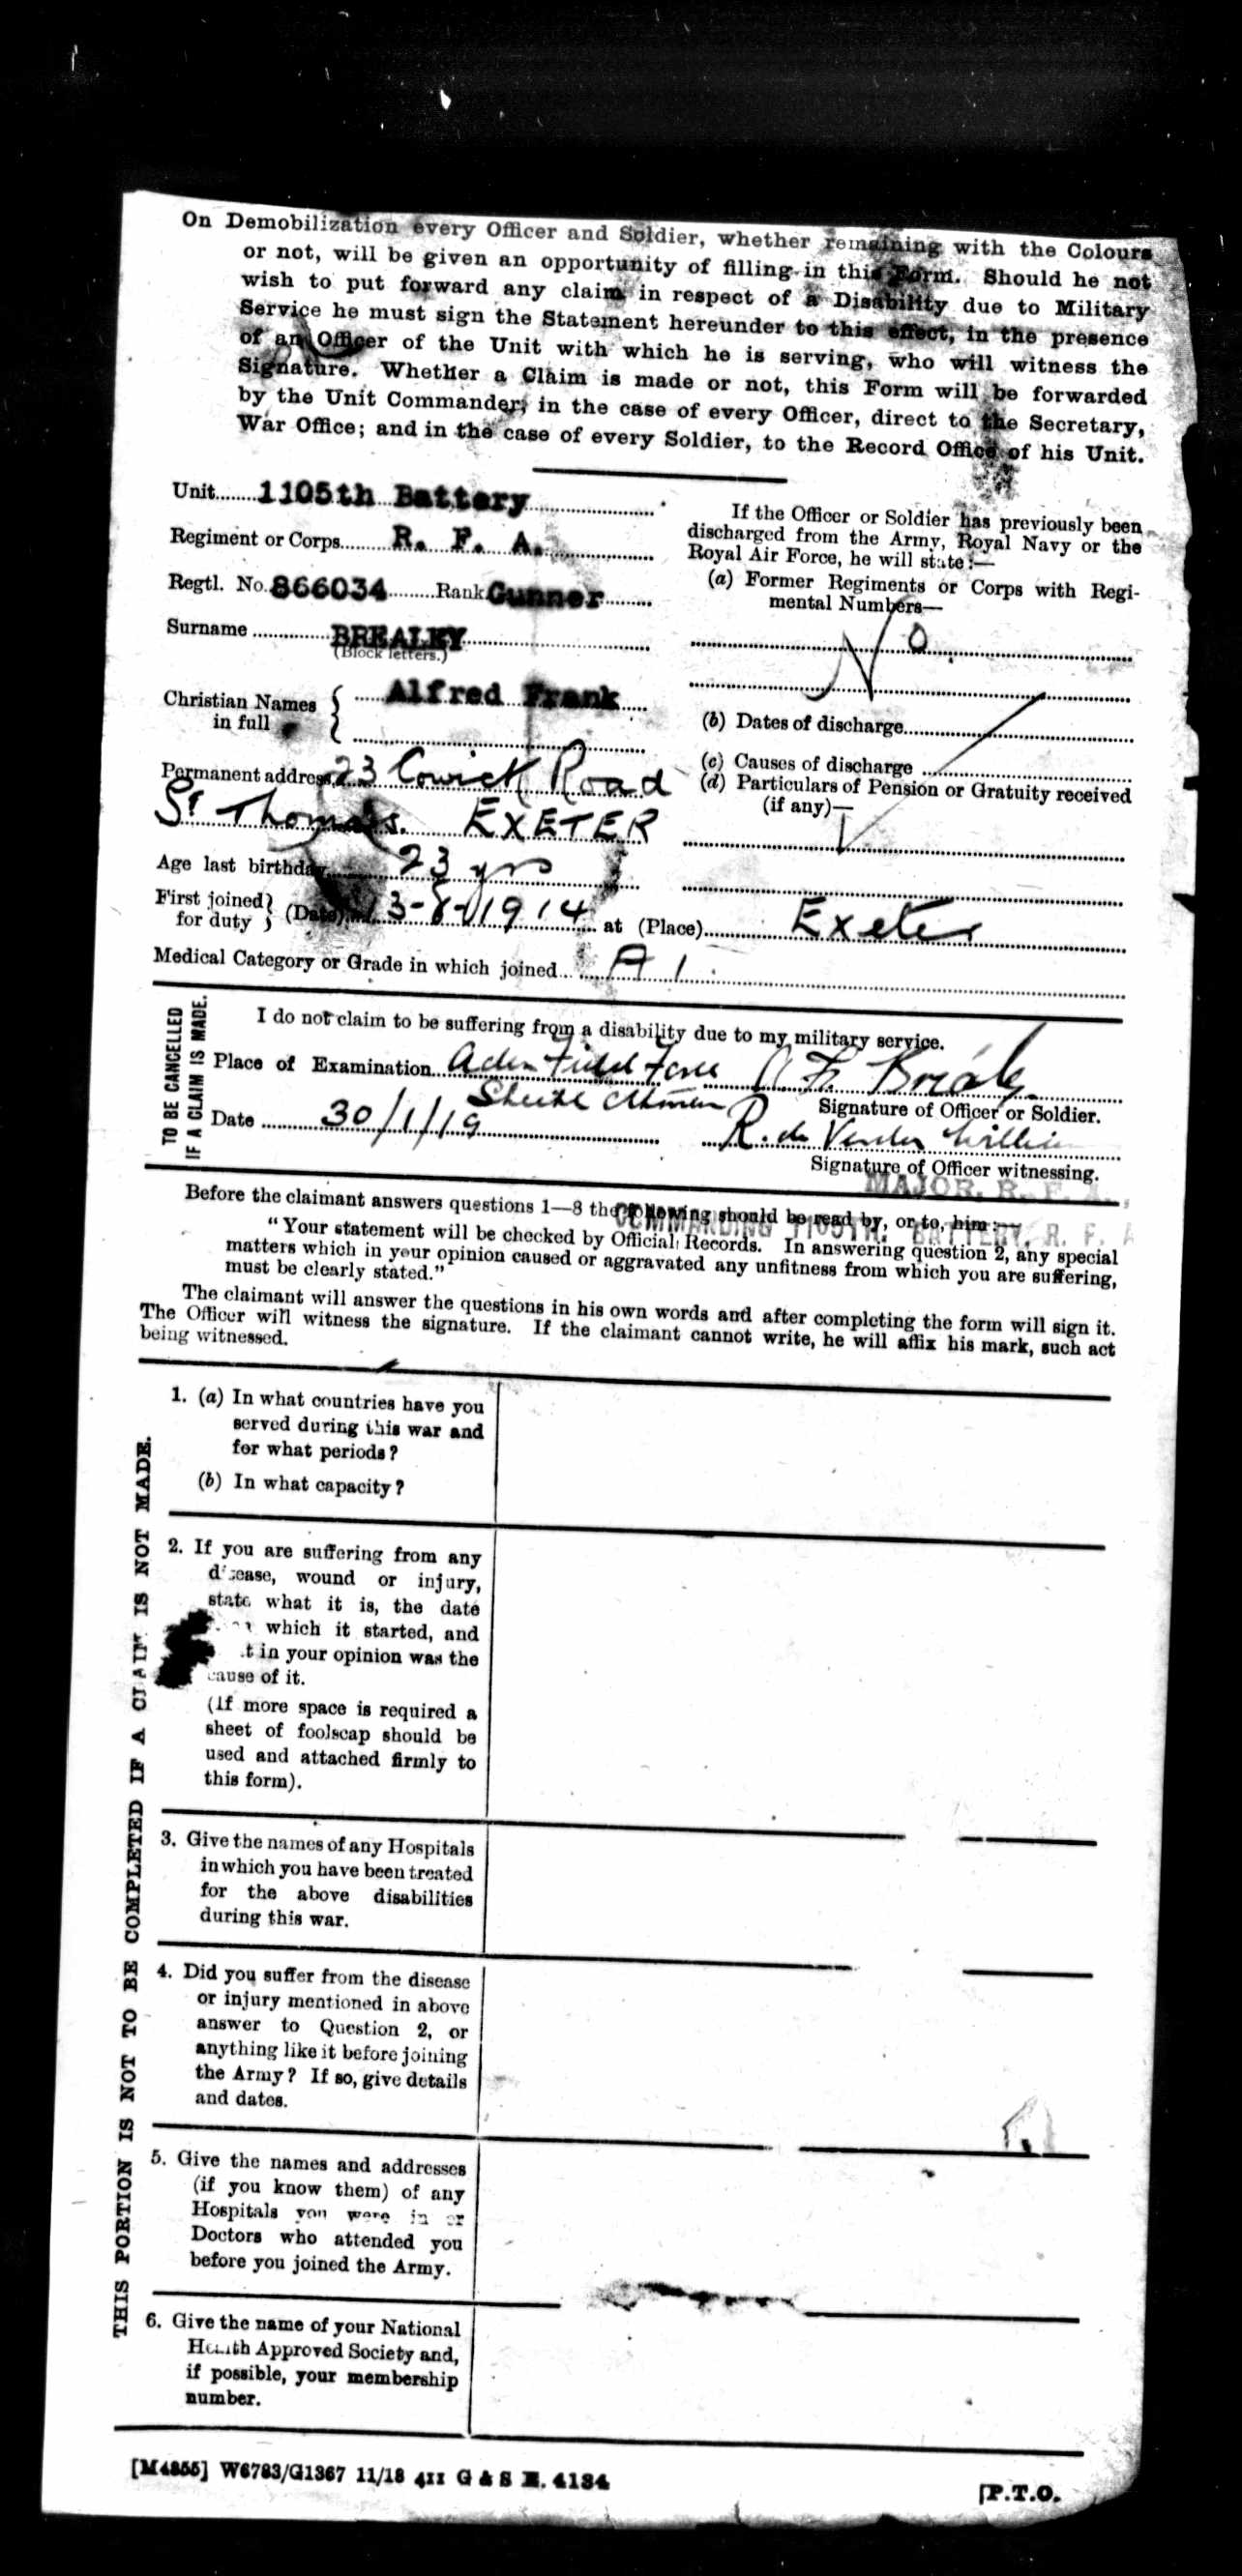 On Demobilization every Officer and Soldier, whether remaining with the Colours
or not, will be given an opportunity of filling in this Form. Should he not
wish to put forward any claim in respect of a Disability due to Military
Service he must sign the Statement hereunder to this effect, in the presence
of an Officer of the Unit with which he is serving, who will witness the
Signature. Whether a Claim is made or not, this Form will be forwarded
by the Unit Commander, in the case of every Officer, direct to the Secretary,
War Office; and in the case of every Soldier, to the Record Office of his Unit.
Unit 1105th Battery
Regiment or Corps R. F. A.
Regtl. No. 866034 Rank Gunner
Surname BREALEY
(Block letters.)
Christian Names in full Alfred Frank
Permanent address 23 Cowick Road
St Thomas. EXETER
Age last birthday 23 yrs
First joined for duty (Date) 3-8-1914 at (Place) Exeter
Medical Category or Grade in which joined A 1.
If the Officer or Soldier has previously been
discharged from the Army, Royal Navy or the
Royal Air Force, he will state:—
(a) Former Regiments or Corps with Regi-
mental Numbers—
No.
(b) Dates of discharge
(c) Causes of discharge
(d) Particulars of Pension or Gratuity received
(if any)—
TO BE CANCELLED
IF A CLAIM IS MADE.
I do not claim to be suffering from a disability due to my military service.
Place of Examination Aden Field Force A F. Brealey
Sheikh Othman Signature of Officer or Soldier.
Date 30/1/19 R. de
Signature of Officer witnessing.
MAJOR, R. F. A.,
COMMANDING 1105TH. BATTERY, R. F. A
Before the claimant answers questions 1—8 the following should be read by, or to, him:—
"Your statement will be checked by Official Records. In answering question 2, any special
matters which in your opinion caused or aggravated any unfitness from which you are suffering,
must be clearly stated."
The claimant will answer the questions in his own words and after completing the form will sign it.
The Officer will witness the signature. If the claimant cannot write, he will affix his mark, such act
being witnessed.
THIS PORTION IS NOT TO BE COMPLETED IF A CLAIM IS NOT MADE.
1. (a) In what countries have you
served during this war and
for what periods?
(b) In what capacity?
2. If you are suffering from any
disease, wound or injury,
state what it is, the date
which it started, and
in your opinion was the
cause of it.
(If more space is required a
sheet of foolscap should be
used and attached firmly to
this form).
3. Give the names of any Hospitals
in which you have been treated
for the above disabilities
during this war.
4. Did you suffer from the disease
or injury mentioned in above
answer to Question 2, or
anything like it before joining
the Army? If so, give details
and dates.
5. Give the names and addresses
(if you know them) of any
Hospitals you were in or
Doctors who attended you
before you joined the Army.
6. Give the name of your National
Health Approved Society and,
if possible, your membership
number.
[M4855] W6783/G1367 11/18 4II G & S E. 4134
[P.T.O.